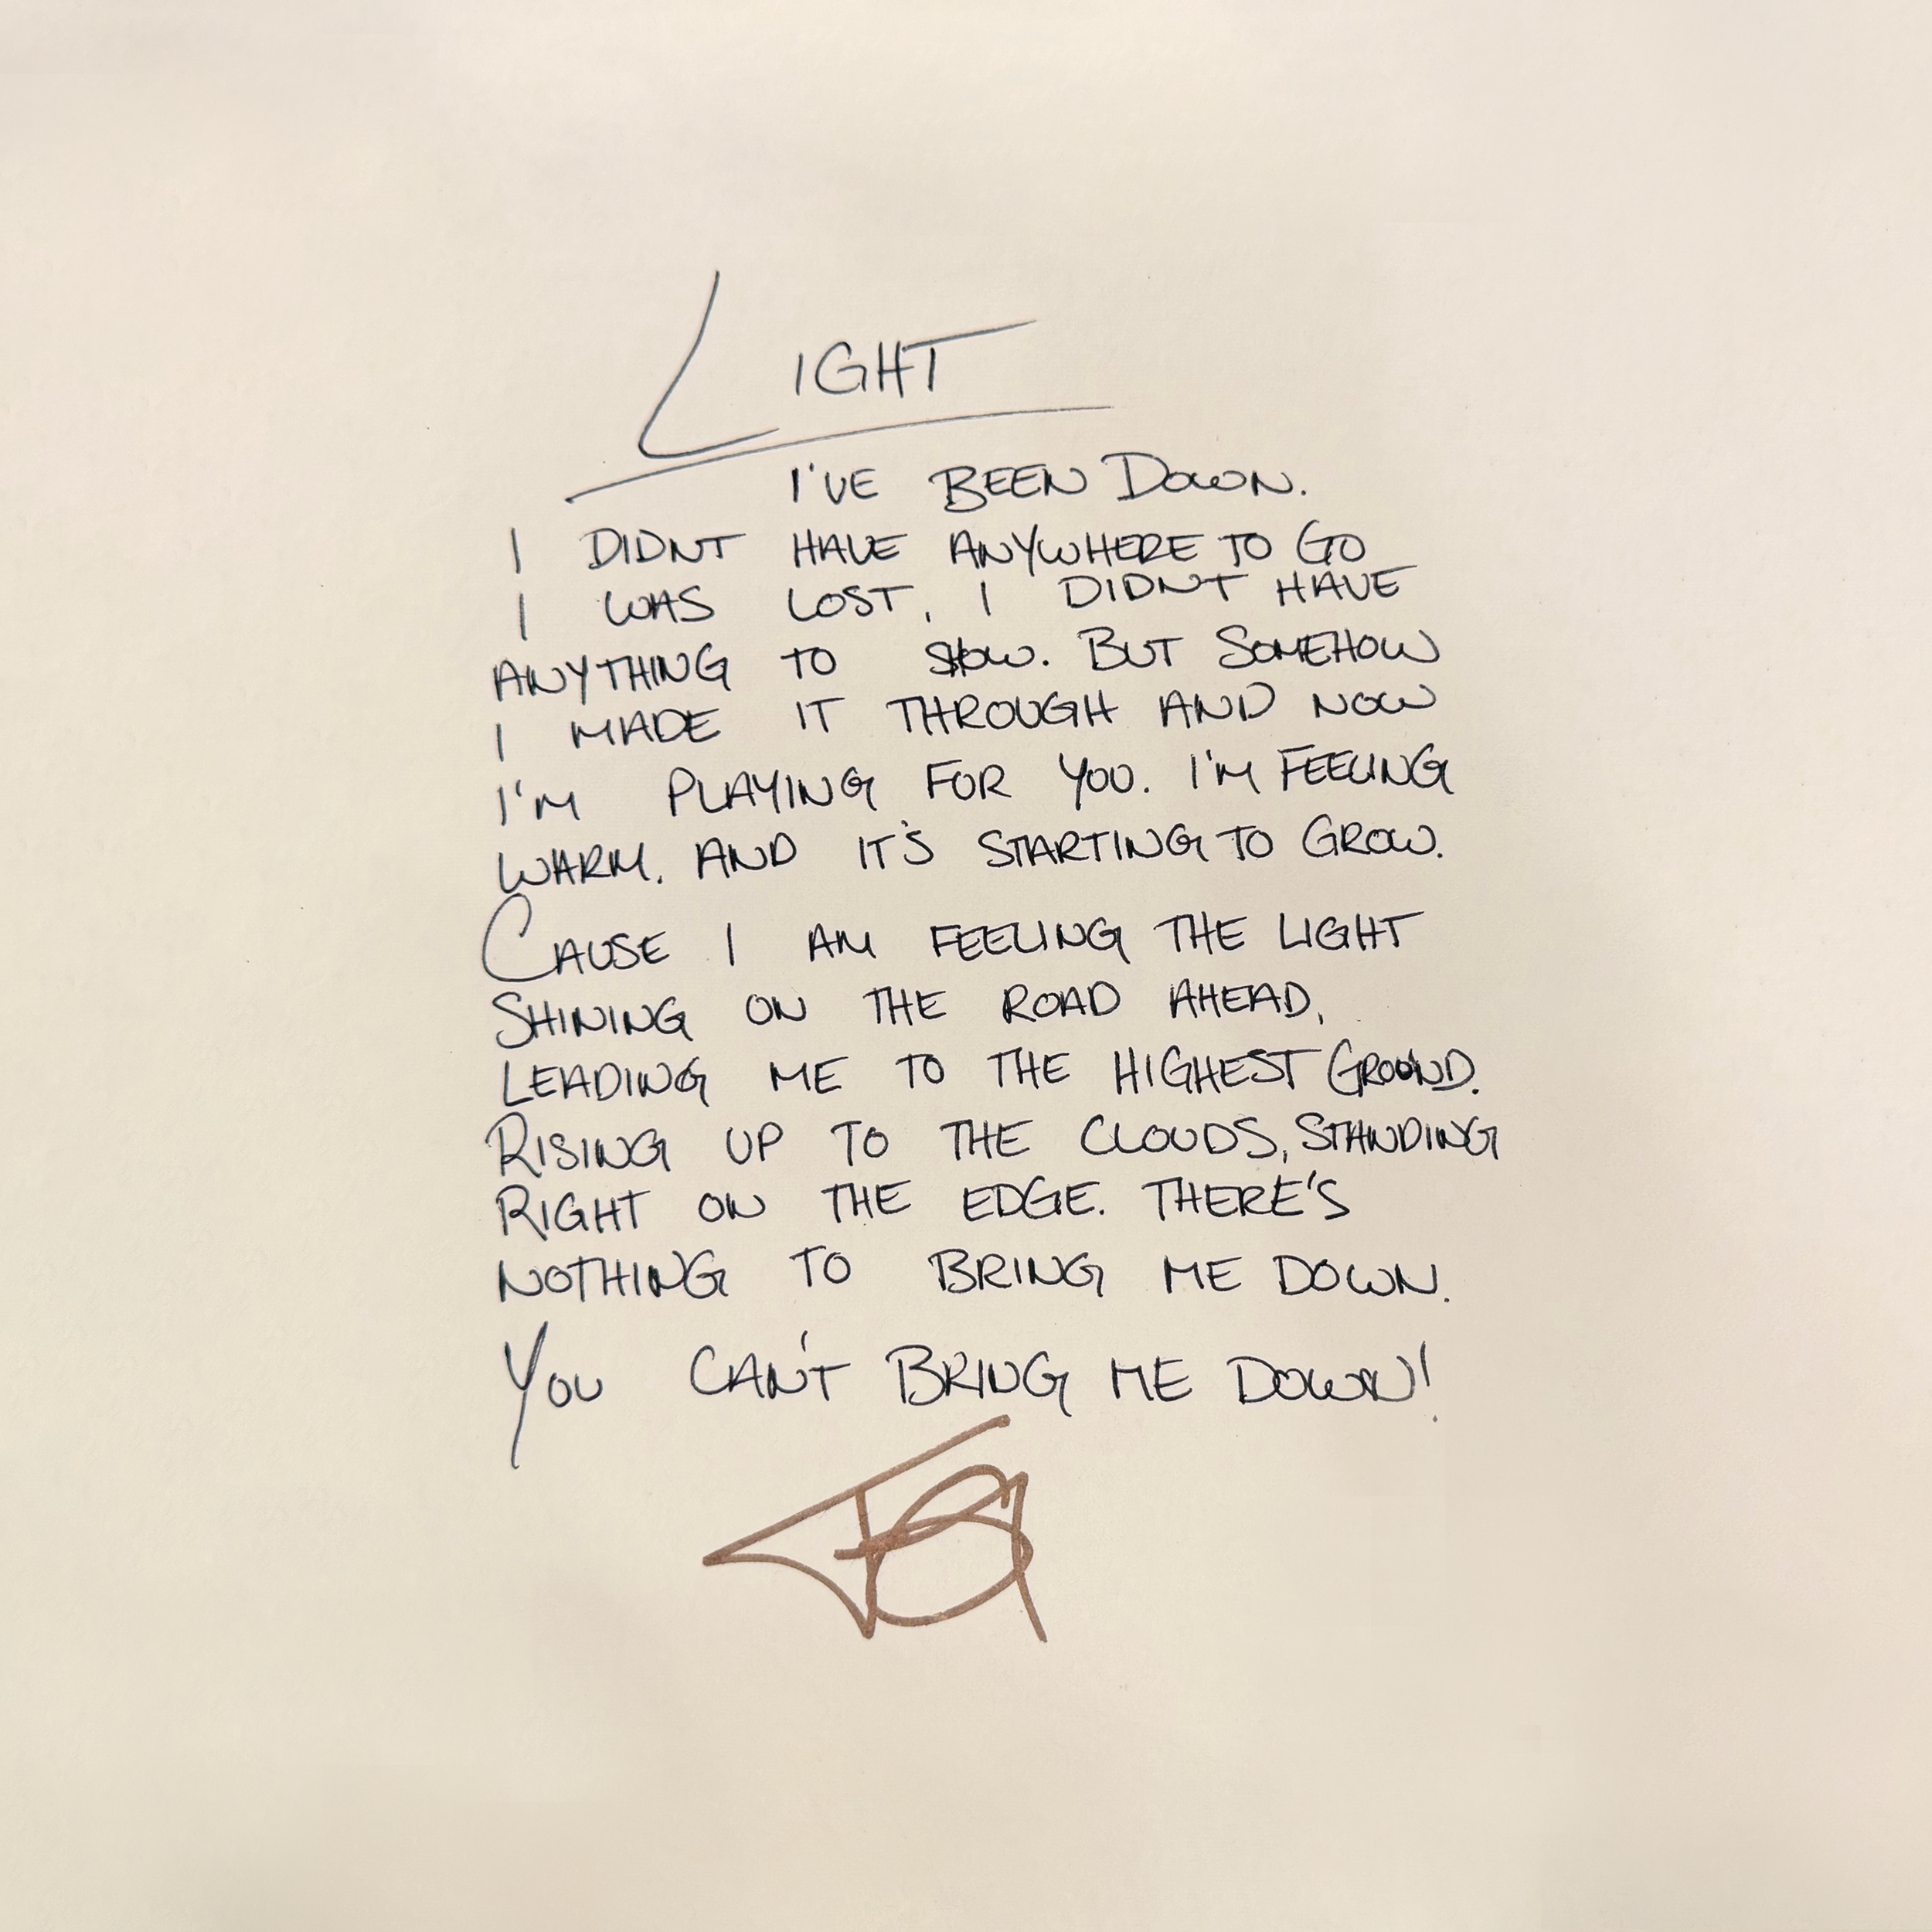 LIGHT
I'VE BEEN DOWN.
I DIDNT HAVE ANYWHERE TO GO
I WAS LOST, I DIDN'T HAVE
ANYTHING TO SHOW. BUT SOMEHOW
I MADE IT THROUGH AND NOW
I'M PLAYING FOR YOU. I'M FEELING
WARM. AND IT'S STARTING TO GROW.
CAUSE I AM FEELING THE LIGHT
SHINING ON THE ROAD AHEAD,
LEADING ME TO THE HIGHEST GROUND.
RISING UP TO THE CLOUDS, STANDING
RIGHT ON THE EDGE. THERE'S
NOTHING TO BRING ME DOWN.
YOU CAN'T BRING ME DOWN!